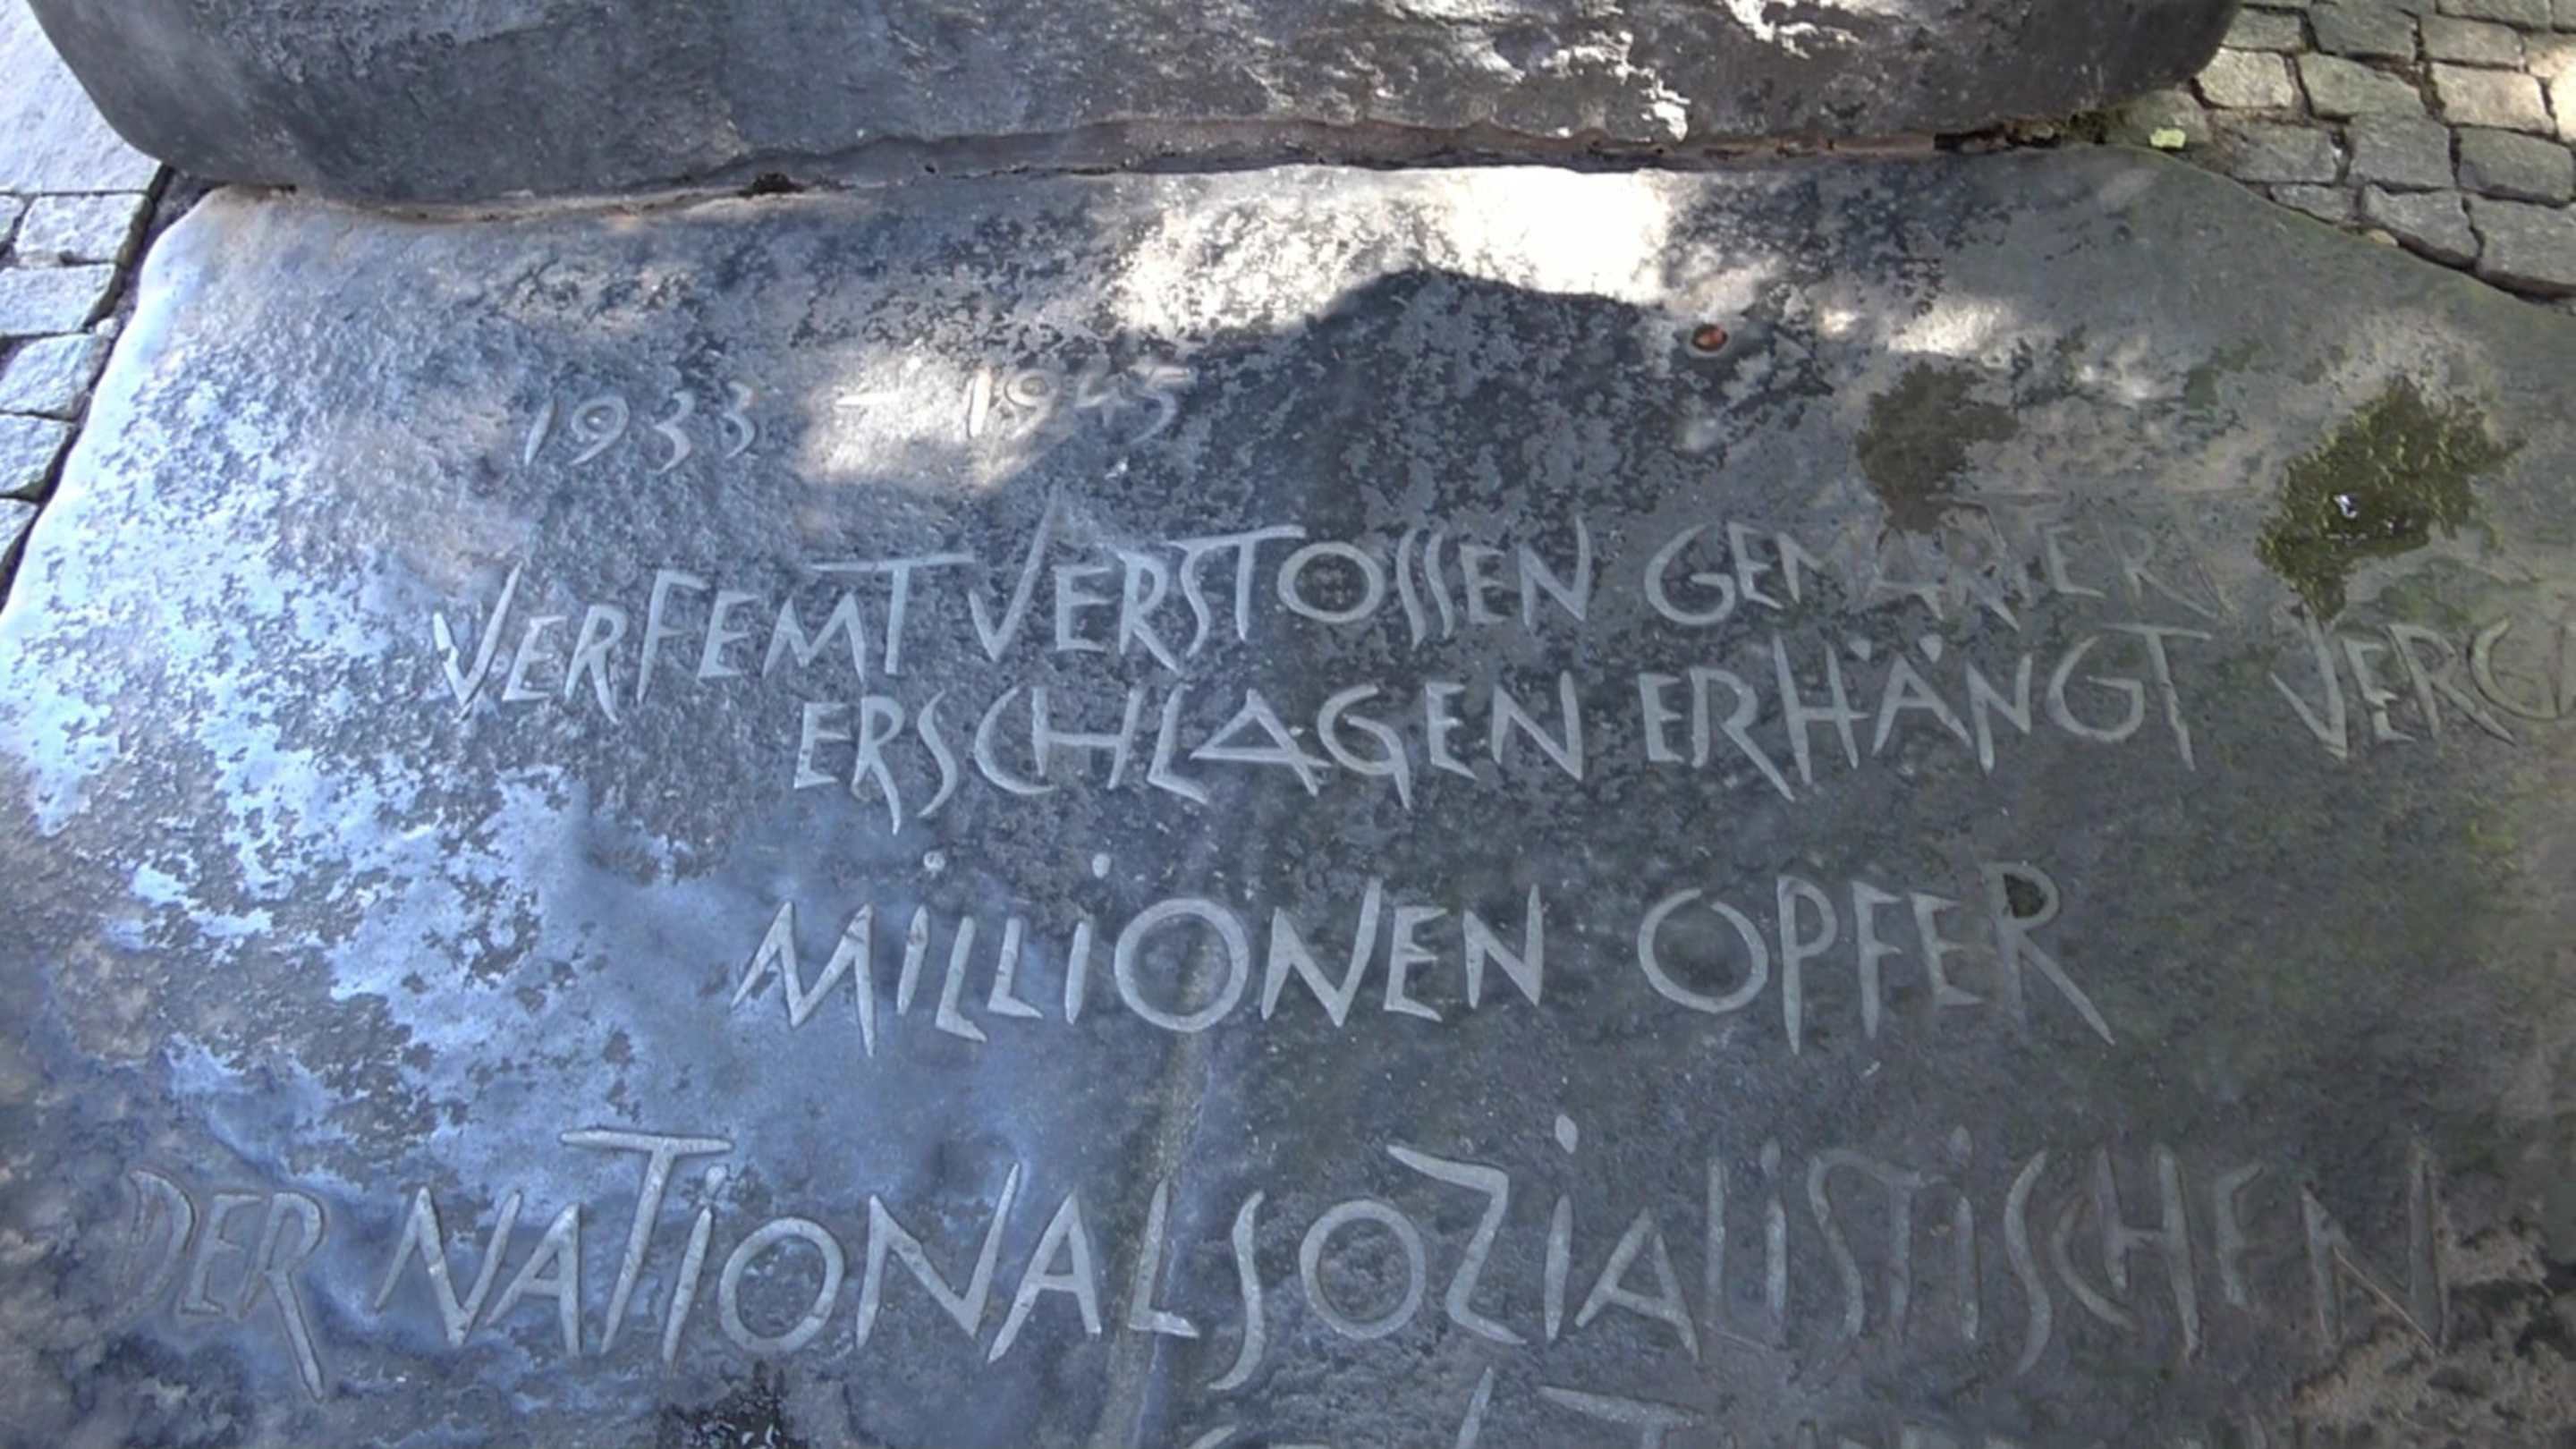 1933 – 1945
VERFEMT VERSTOSSEN GEMARTERT
ERSCHLAGEN ERHÄNGT
MiLLiONEN OPFER
DER NATiONALSOZiALiSTiSCHEN